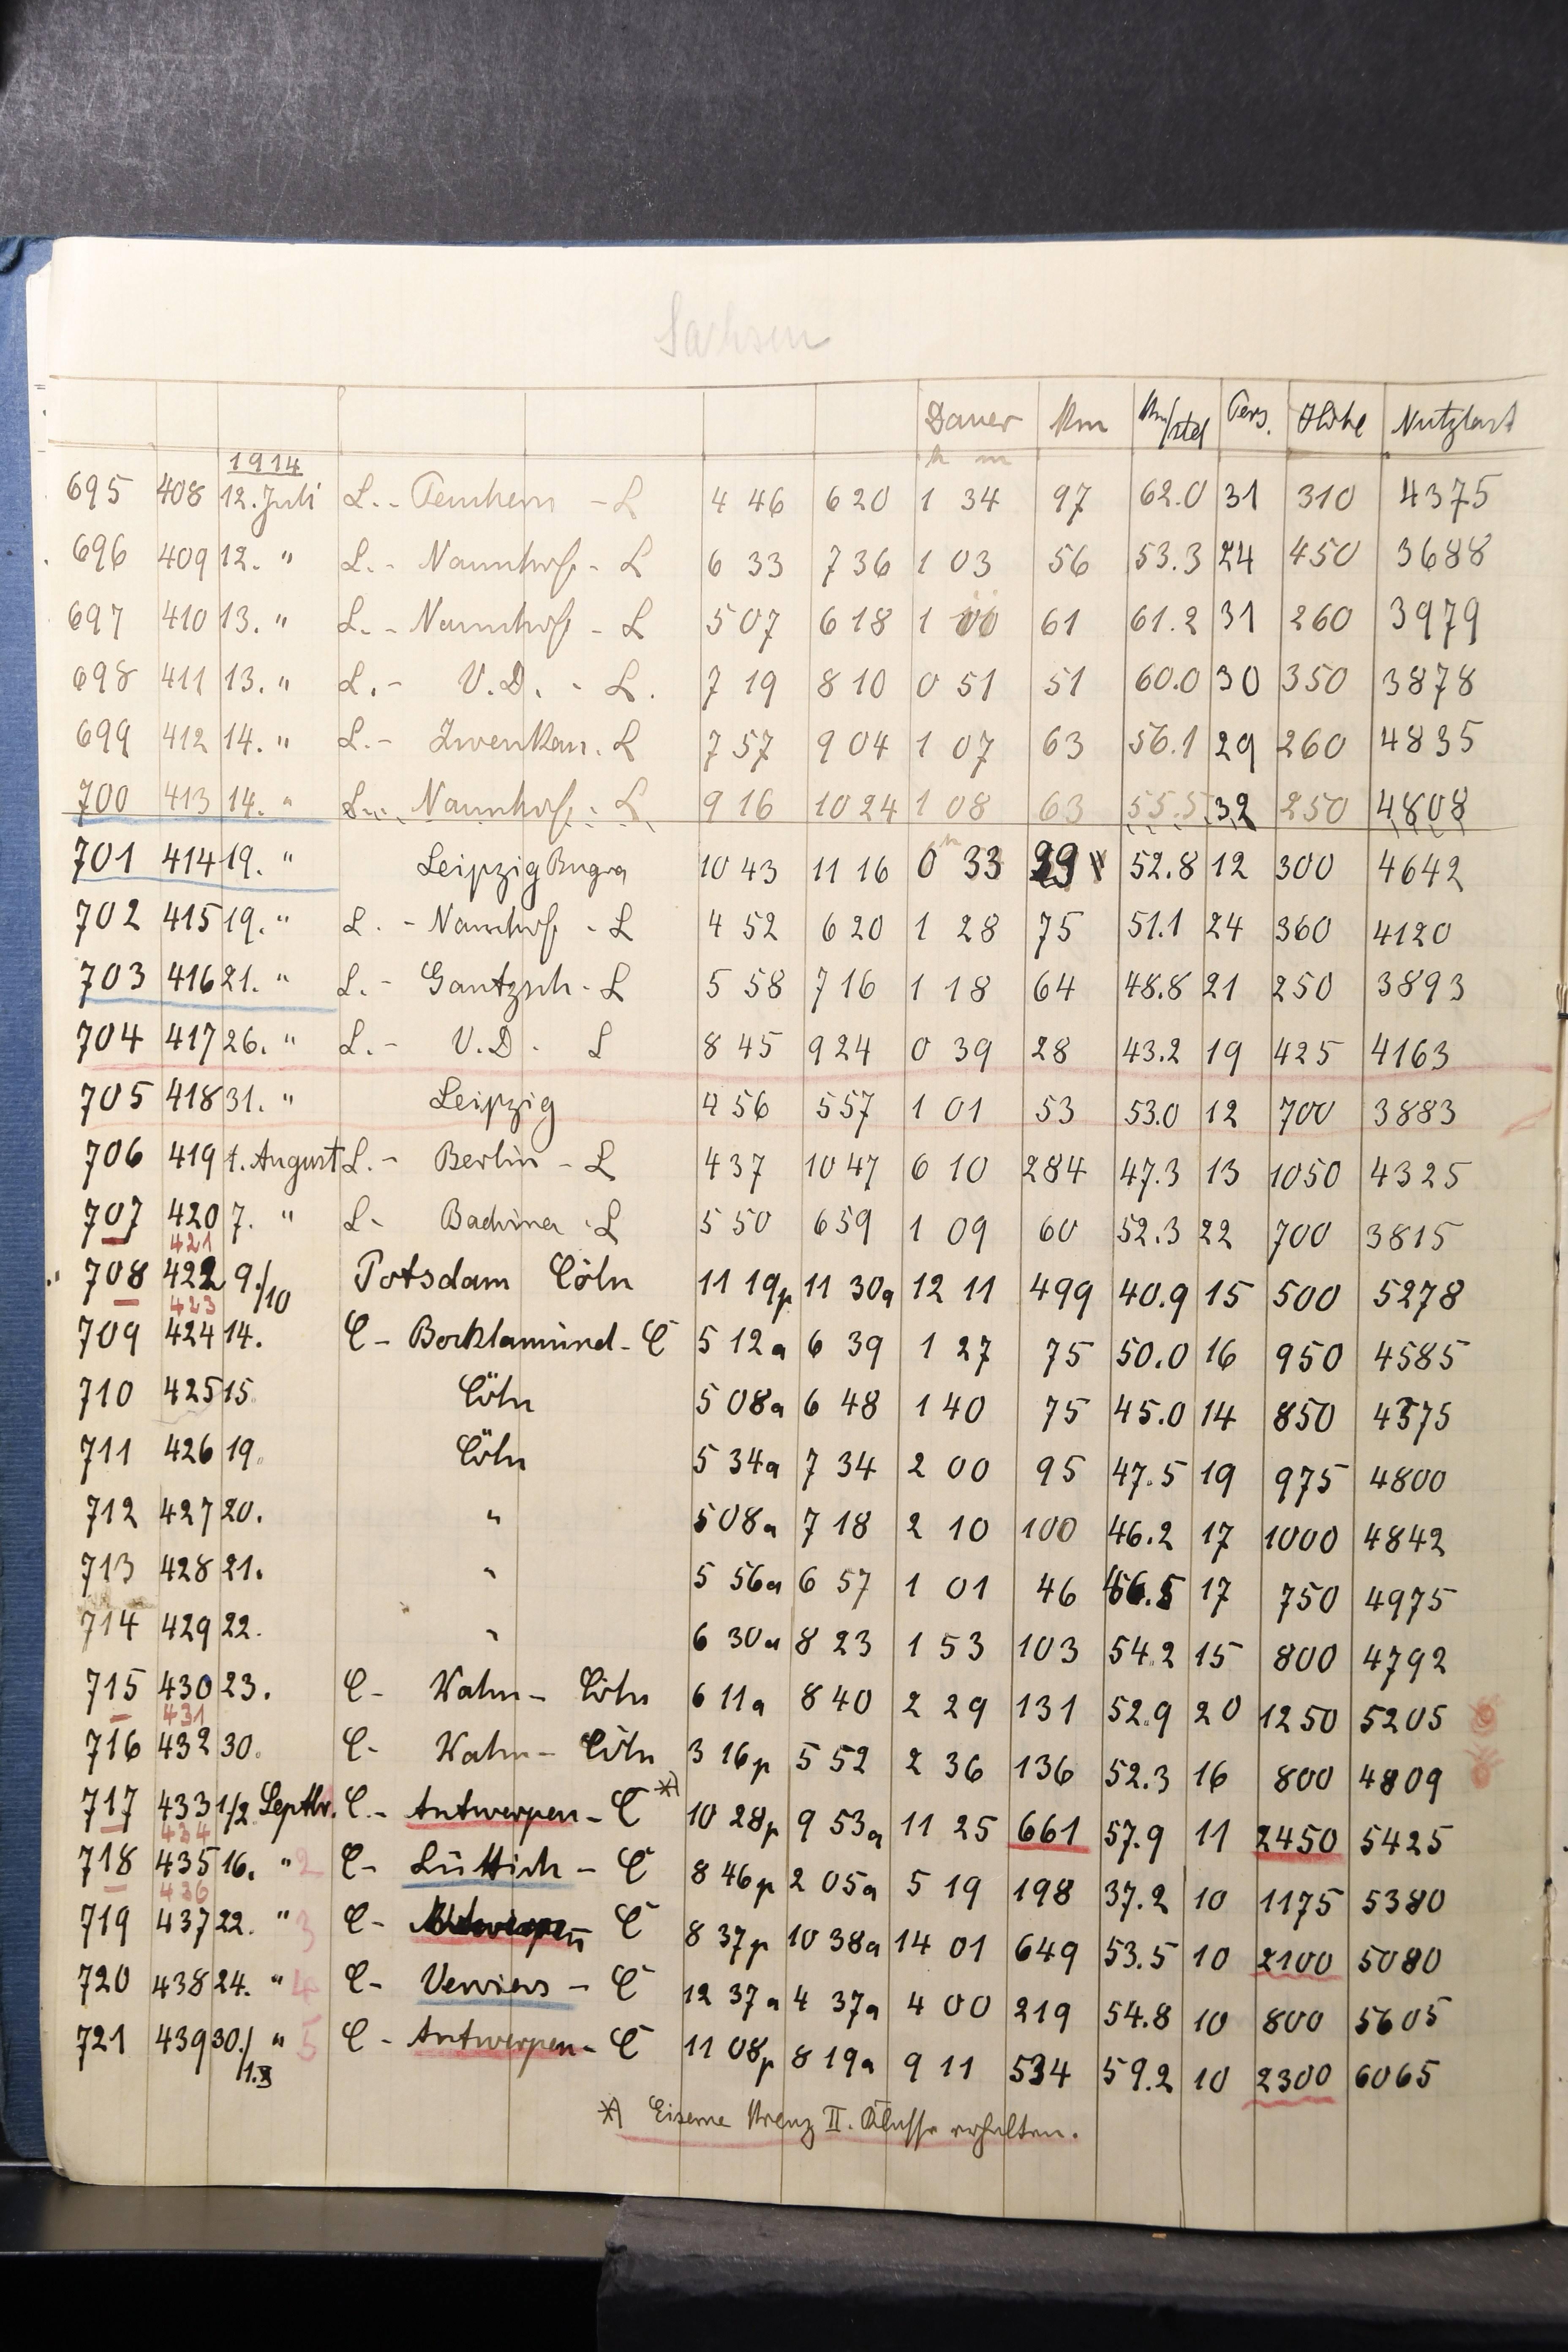 Sachsen
Dauer Km Km/std Pers. Höhe Nutzlast
h m
1914
695 408 12. Juli L. - - L 4 46 6 20 1 34 97 62.0 31 310 4375
696 409 12. " L. - Naunhof - L 6 33 7 36 1 03 56 53.3 24 450 3688
697 410 13. " L. - Naunhof - L 5 07 6 18 1 00 61 61.2 31 260 3979
698 411 13. " L. - V.D. - L. 7 19 8 10 0 51 51 60.0 30 350 3878
699 412 14. " L. - Zwenkau. L 7 57 9 04 1 07 63 56.1 29 260 4835
700 413 14. " L. - Naunhof - L 9 16 10 24 1 08 63 55.5 32 250 4808
701 414 19. " Leipzig Bugra 10 43 11 16 0 33 29 52.8 12 300 4642
702 415 19. " L. - Naunhof - L 4 52 6 20 1 28 75 51.1 24 360 4120
703 416 21. " L. - Gautzsch - L 5 58 7 16 1 18 64 48.8 21 250 3893
704 417 26. " L. - V.D. L 8 45 9 24 0 39 28 43.2 19 425 4163
705 418 31. " Leipzig 4 56 5 57 1 01 53 53.0 12 700 3883
706 419 1. August L. - Berlin - L 4 37 10 47 6 10 284 47.3 13 1050 4325
707 420 7. " L - - L 5 50 6 59 1 09 60 52.3 22 700 3815
421
708 422 9./10 Potsdam Cöln 11 19p 11 30a 12 11 499 40.9 15 500 5278
423
709 424 14. C - Bocklemünd - C 5 12a 6 39 1 27 75 50.0 16 950 4585
710 425 15. Cöln 5 08a 6 48 1 40 75 45.0 14 850 4375
711 426 19. Cöln 5 34a 7 34 2 00 95 47.5 19 975 4800
712 427 20. " 5 08a 7 18 2 10 100 46.2 17 1000 4842
713 428 21. " 5 56a 6 57 1 01 46 17 750 4975
714 429 22. " 6 30a 8 23 1 53 103 54.2 15 800 4792
715 430 23. C - Wahn - Cöln 6 11a 8 40 2 29 131 52.9 20 1250 5205
431
716 432 30. C - Wahn - Cöln 3 16p 5 52 2 36 136 52.3 16 800 4809
717 433 1/2. Septbr. C. - Antwerpen - C *) 10 28p 9 53a 11 25 661 57.9 11 2450 5425
434
718 435 16. " 2 C - Lüttich - C 8 46p 2 05a 5 19 198 37.2 10 1175 5380
436
719 437 22. " 3 C - Antwerpen C 8 37p 10 38a 14 01 649 53.5 10 2100 5080
720 438 24. " 4 C - Verviers - C 12 37a 4 37a 4 00 219 54.8 10 800 5605
721 439 30./1.X " 5 C - Antwerpen - C 11 08p 8 19a 9 11 534 59.2 10 2300 6065
*) Eiserne Kreuz II. Klasse erhalten.